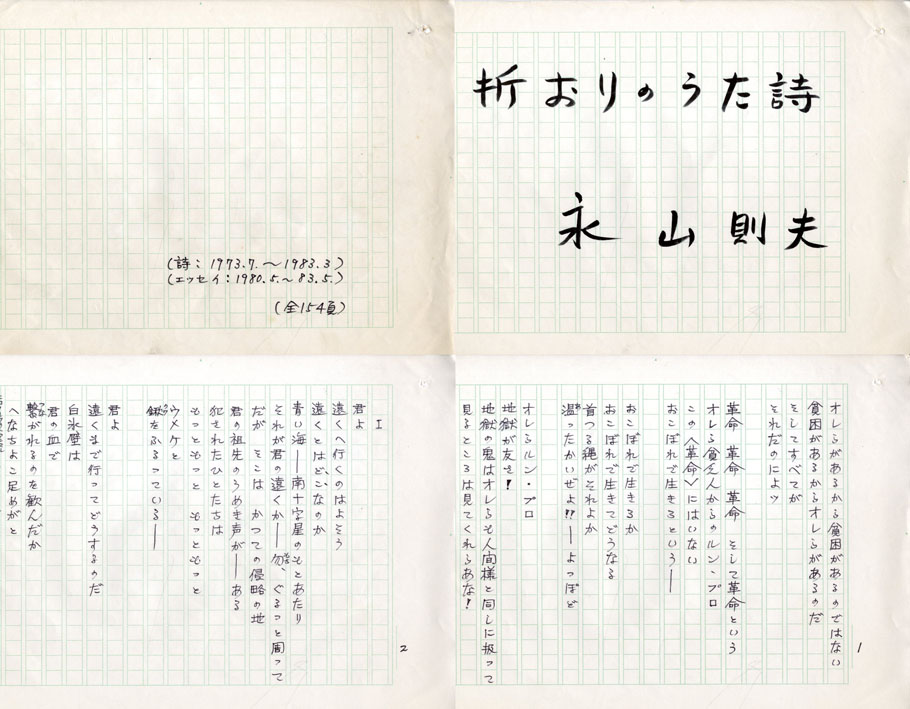 折おりのうた詩
永山則夫
(詩：1973.7.～1983.3)
(エッセイ：1980.5.～83.5.)
(全154頁)
1
オレがあるから貧困があるのではない
貧困があるからオレらがあるのだ
そしてすべてが
それだのによッ
革命　革命　革命　そして革命という
オレら貧乏人からのルン・プロ
この〈革命〉にはいない
おこぼれで生きろという――
おこぼれで生きるか
おこぼれで生きてどうなる
首つる縄がそれよか
温ったかいぜよ!!――よっぽど
オレらルン・プロ
地獄が友さ!
地獄の鬼はオレらも人間様と同じに扱って
見るところは見てくれらあな!
2
I
君よ
遠くへ行くのはよそう
遠くとはどこなのか
青い海――南十字星のもとあたり
それが君の遠くか――勿論、ぐるっと周って
だが　そこは　かつての侵略の地
君の祖先のうめき声が――ある
犯されたひとたちは
もっともっと　もっともっと
ウメケと
鍬をふるっている――
君よ
遠くまで行ってどうするのだ
白氷壁は
君の血で
繋がれるのを歓んだか
へなちょこ足めがと